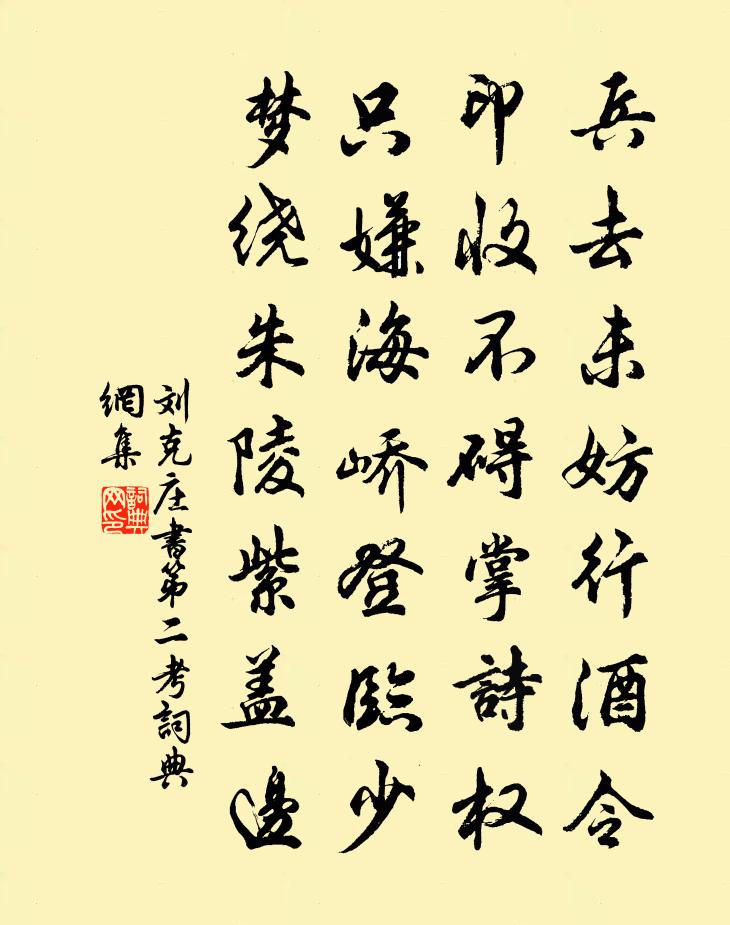 兵去未妨行酒令
印收不碍掌詩权
只嫌海峤登臨少
梦绕朱陵紫盖邊
刘克庄書第二考詞典
網集
詞典
网印